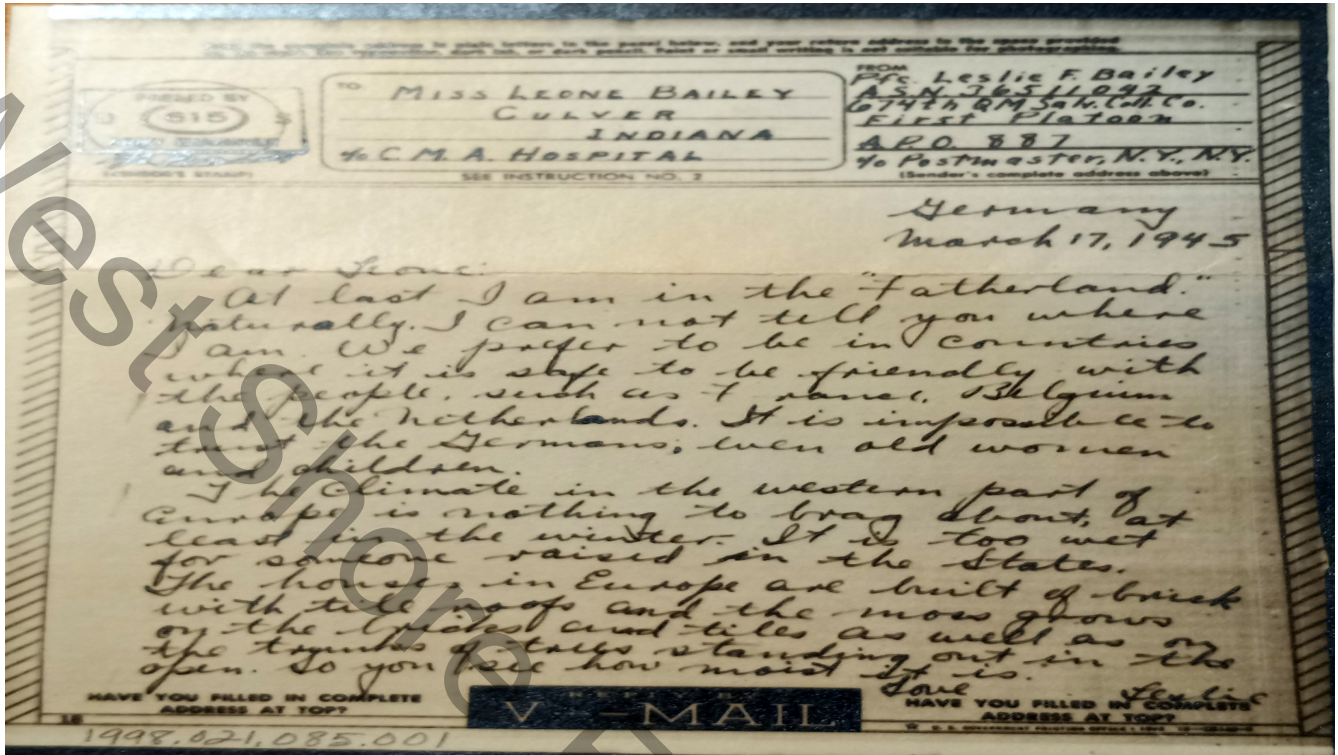 the complete address in plain letters in the panel below, and your return address in the space provided
small writing is not suitable for photographing.
PASSED BY
515
(CENSOR'S STAMP)
TO
MISS LEONE BAILEY
CULVER
INDIANA
℅ C.M.A. HOSPITAL
SEE INSTRUCTION NO. 2
FROM
Pfc. Leslie F. Bailey
ASN 36511092
674th QM Salv. Coll. Co.
First Platoon
A.P.O. 887
℅ Postmaster, N.Y., N.Y.
(Sender's complete address above)
Germany
March 17, 1945
Dear Leone:
At last I am in the "Fatherland."
Naturally. I can not tell you where
I am. We prefer to be in countries
where it is safe to be friendly with
the people, such as France, Belgium
and the Netherlands. It is impossible to
trust the Germans, even old women
and children.
The climate in the western part of
Europe is nothing to brag about, at
least in the winter. It is too wet
for someone raised in the States.
The houses in Europe are built of brick
with tile roofs and the moss grows
on the bricks and tiles as well as on
the trunks of trees standing out in the
open. So you see how moist it is.
Love
Leslie
HAVE YOU FILLED IN COMPLETE
ADDRESS AT TOP?
REPLY BY
V-MAIL
HAVE YOU FILLED IN COMPLETE
ADDRESS AT TOP?
16
1998.021.085.001
West Shore